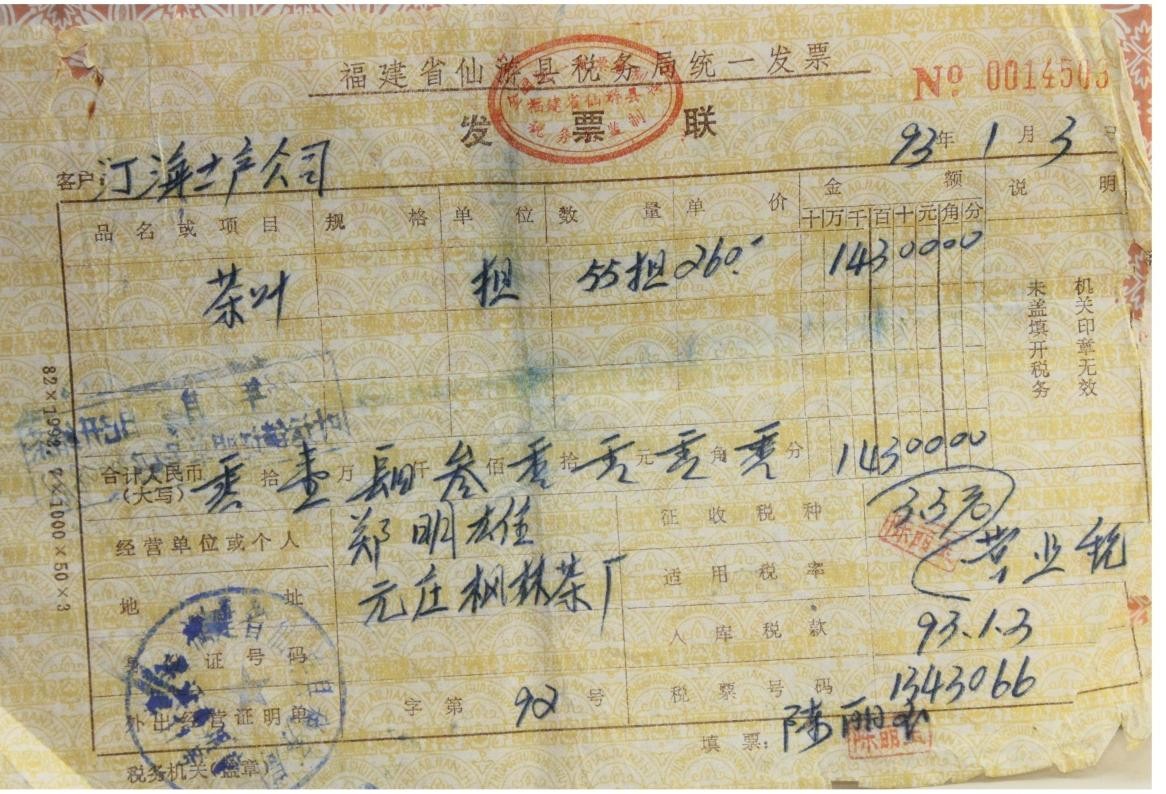 福建省仙游县税务局统一发票
发票联
福建省仙游县
税务 监制
№ 0014503
93年1月3日
客户:汀海土产公司
品名或项目 规格 单位 数量 单价 金额 说明
十万千百十元角分
茶叶 担 55担 260.- 1430000
未盖填开税务
机关印章无效
合计人民币 零拾壹万肆仟叁佰零拾零元零角零分 1430000
(大写)
经营单位或个人 郑明雄 征收税种 3.5%
陈丽玉
营业税
地址 元庄枫林茶厂 适用税率
入库税款 93.1.3
身份证号码
税票号码 1343066
外出经营证明单 字第92号
填票:陈丽玉
陈丽玉
税务机关(盖章)
82×1992.
×1000×50×3